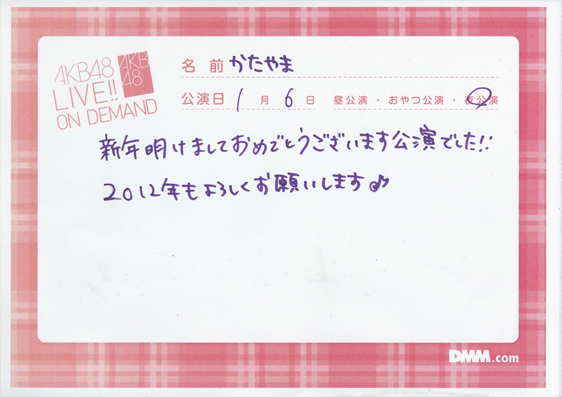 AKB48
LIVE!!
ON DEMAND
AKB
48
名 前 かたやま
公演日 1 月 6 日 昼公演・おやつ公演・夜公演
新年明けましておめでとうございます公演でした!!
2012年もよろしくお願いします♪
DMM.com